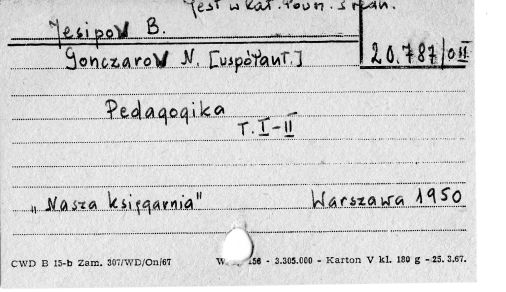 Jest w kat. 
Jesipow B.
Gonczarow N. [współaut.]
20.787/OII
Pedagogika
T. I-II
"Nasza księgarnia" Warszawa 1950
CWD B 15-b Zam. 307/WD/On/67
156 - 3.305.000 - Karton V kl. 180 g - 25.3.67.